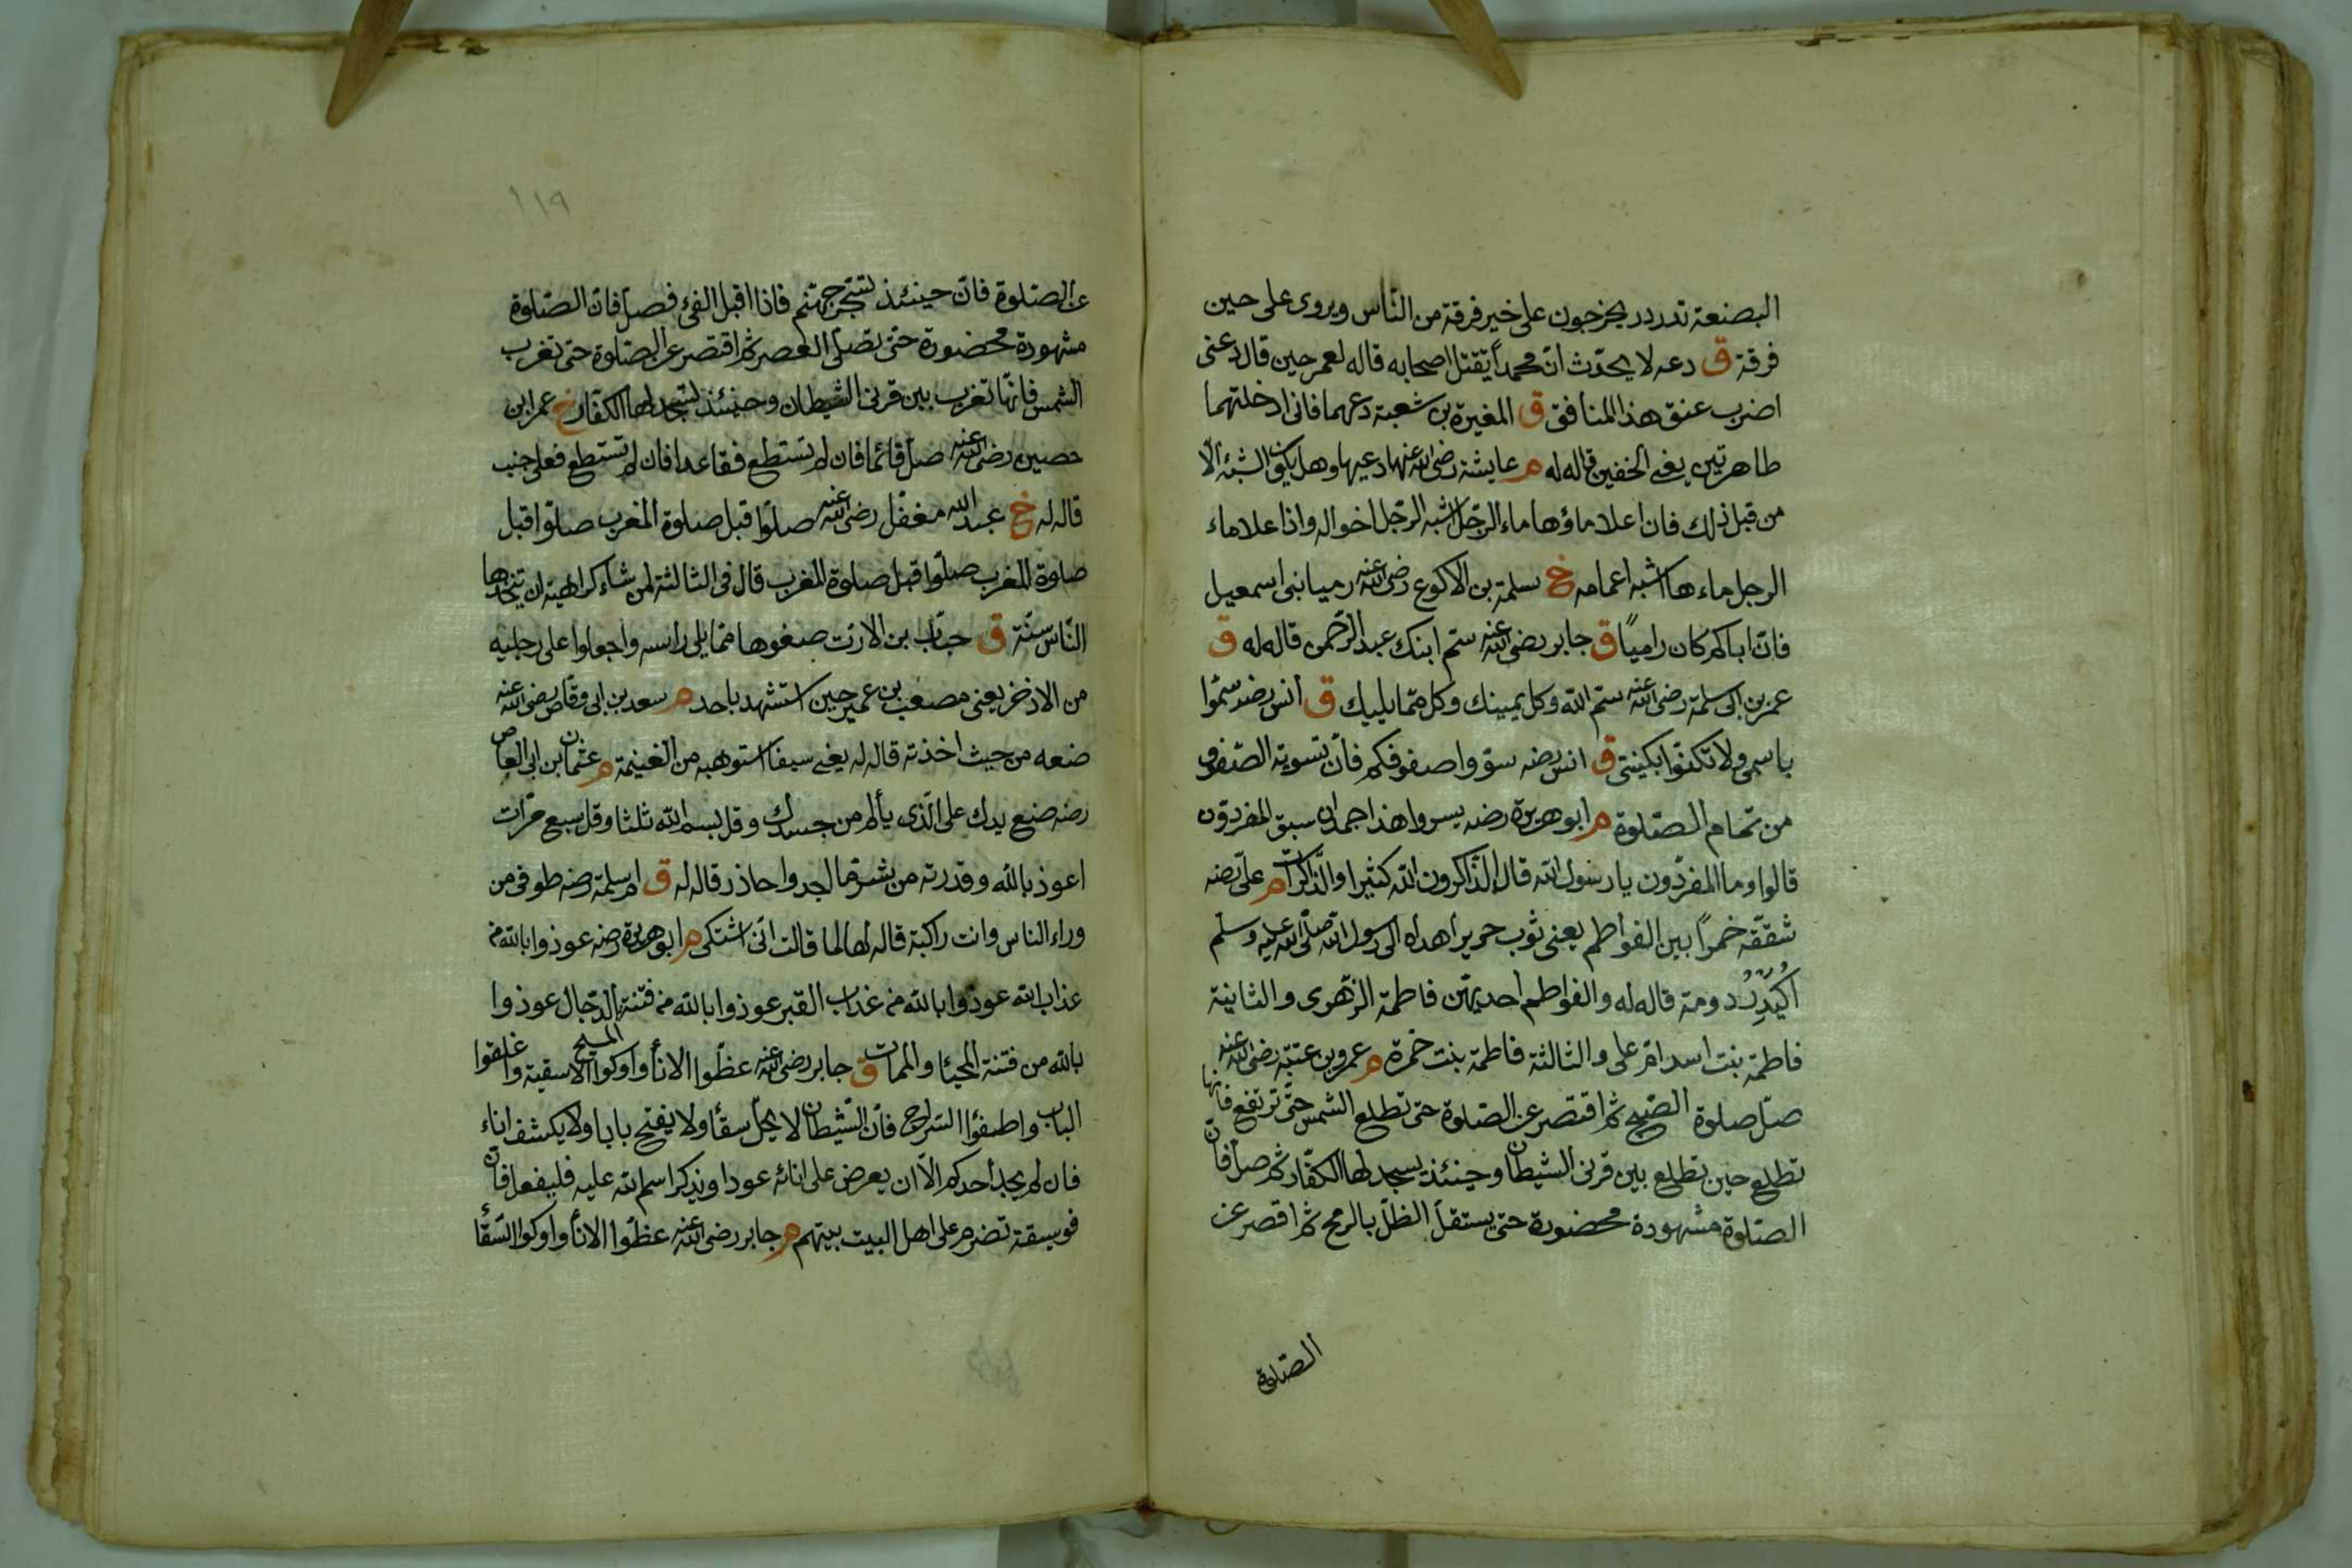 البضعة تدردر يخرجون على خير فرقة من الناس ويروى على حين
فرقة ق دعه لا يحدّث انّ محمداً يقتل اصحابه قاله لعمر حين قال دعنى
اضرب عنق هذا المنافق ق المغيرة بن شعبة دعهما فانى ادخلتهما
طاهرتين يعنى الخفين قاله له م عايشة رضى الله عنها دعيها وهل يكون الشبه الّا
من قبل ذلك فان اعلا ماؤها ماء الرّجل اشبه الرجل اخواله واذا علا ماء
الرجل ماءها اشبه اعمامه خ سلمة بن الاكوع رضى الله عنه رميا بنى اسمعيل
فانّ اباكم كان راميًا ق جابر رضى الله عنه سمّ ابنك عبد الرّحمن قاله له ق
عمر بن ابى سلمة رضى الله عنه سمّ الله وكل بيمينك وكل ممّا يليك ق أنس رضه سمّوا
باسمى ولا تكنّوا بكنيتى ق انس رضه سوّوا صفوفكم فانّ تسوية الصّفوف
من تمام الصّلوة م ابو هريرة رضه يسروا هذا جمدان سبق المفردّون
قالوا وما المفردّون يا رسول الله قال الذّاكرون الله كثيرا والذّاكرات م علىّ رضه
شققه خمراً بين الفواطم يعنى ثوب حرير أهداه الى رسول الله صلّى الله عليه وسلّم
اُكَيْدِرُ دومة قاله له والفواطم أحديهنّ فاطمة الزّهرى والثانية
فاطمة بنت اسد امّ على والثالثة فاطمة بنت حمزة م عمرو بن عتبة رضى الله عنه
صلّ صلوة الصّبح ثم اقتصر عن الصّلوة حتى تطلع الشمس حتّى ترتفع فانها
تطلع حين تطلع بين قرنى الشيطان وحينئذ يسجد لها الكفّار ثم صلّ فانّ
الصّلوة مشهودة محضورة حتى يستقلّ الظلّ بالرمح ثم اقصر عن
الصّلوة
١١٩
عن الصّلوة فانّ حينئذ تسجّر جهنّم فاذا اقبل الفىء فصلّ فانّ الصّلوة
مشهودة محضورة حتى تصلّى العصر ثم اقتصر عن الصّلوة حتى تغرب
الشمس فانّها تغرب بين قرنى الشيطان وحينئذ يسجد لها الكفّار خ عمر ابن
حصين رضى الله عنه صلّ قائما فان لم تستطع فقاعدا فان لم تستطع فعلى جنب
قاله له خ عبد الله مغفّل رضى الله عنه صلّوا قبل صلوة المغرب صلّوا قبل
صلوة المغرب صلّوا قبل صلوة المغرب قال فى الثالثة لمن شاء كراهية ان يتّخذها
النّاس سنّة ق خبّاب بن الارتّ ضعوها ممّا يلى راسه واجعلوا على رجليه
من الاذخر يعنى مصعب بن عمير حين استشهد باحد م سعد بن ابى وقّاص رضى الله عنه
ضعه من حيث اخذته قاله له يعنى سيفا استوهبه من الغنيمة م عثمان بن ابى العاص
رضه ضع يدك على الّذى يألم من جسدك وقل بسم الله ثلثا وقل سبع مرّات
اعوذ بالله وقدرته من شرّ ما اجد واحاذر قاله له ق ام سلمة رضه طوفى من
وراء الناس وانت راكبة قاله لها لما قالت انّى اشتكى م ابو هريرة رضه عوذوا بالله من
عذاب الله عوذوا بالله من عذاب القبر عوذوا بالله من فتنة المسيح الدّجّال عوذوا
بالله من فتنة المحيا والممات ق جابر رضى الله عنه عظّوا الانأ واوكوا الاسقية واغلقوا
الباب واطفؤا السّراج فانّ الشّيطان لا يحلّ سقأ ولا يفتح بابا ولا يكشف اناء
فان لم يجد أحدكم الّا ان يعرض على انائه عودا ويذكر اسم الله عليه فليفعل فانّ
فويسقة تضرم على اهل البيت بيتهم م جابر رضى الله عنه عظّوا الانأ واوكوا السّقأ